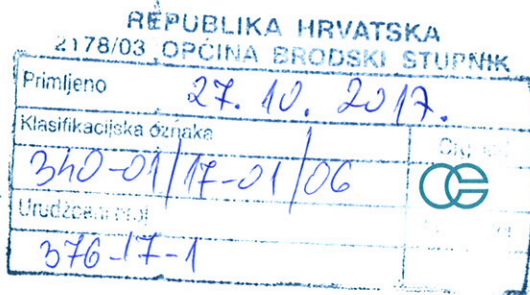 REPUBLIKA HRVATSKA
2178/03 OPĆINA BRODSKI STUPNIK
Primljeno 27. 10. 2017.
Klasifikacijska oznaka
340-01/17-01/06
376-17-1